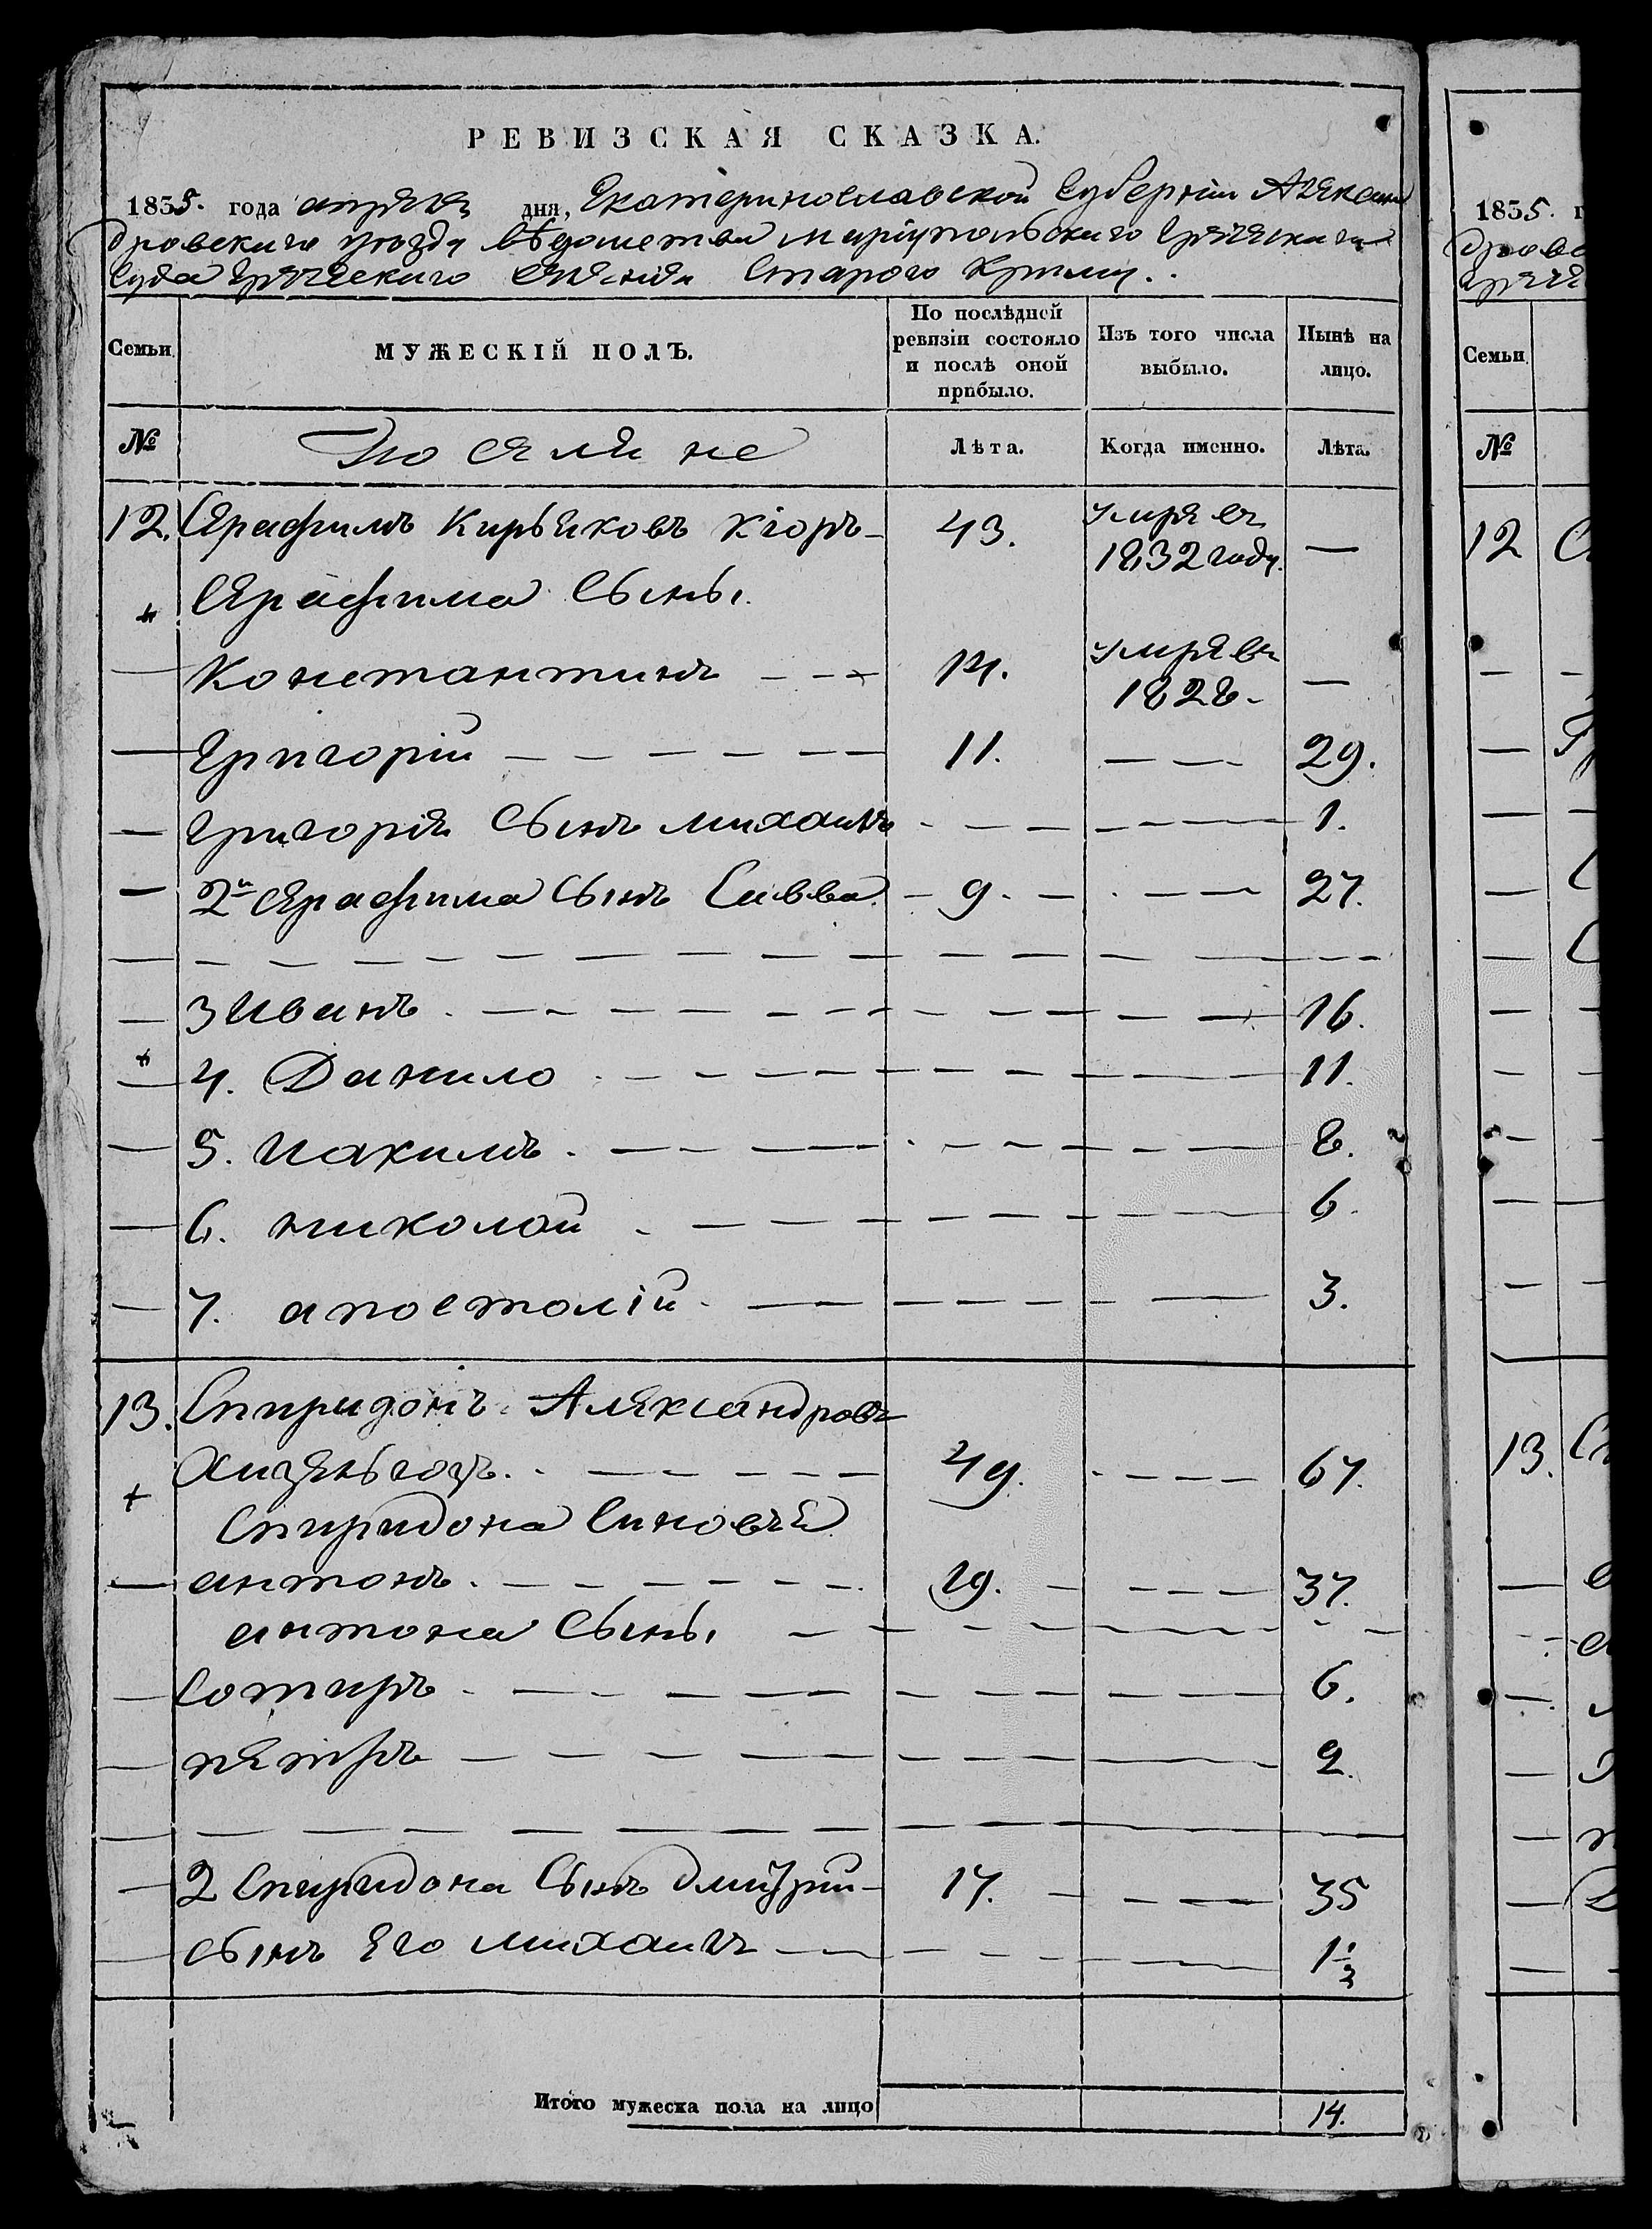 РЕВИЗСКАЯ СКАЗКА.
1835. года апреля дня, Екатеринославской Губернии Алексан
дровскаго уезду ведомства мариупольскаго греческаго
Суда греческаго селения Старого Крыму.
Семьи. МУЖЕСКІЙ ПОЛЪ. По послѣдней ревизіи состояло и послѣ оной прибыло. Изъ того числа выбыло. Нынѣ на лицо.
№ Поселяне Лѣта. Когда именно. Лѣта.
12. Серафимъ Кирьяковъ Кіоръ- 43. умре въ 1832 году. —
Серафима Сыны.
— Константинъ - - - 14. умре въ 1828 - —
— Григорій - - - 11. - - 29.
— Григорія Сынъ михаилъ - - - 1.
— 2й Серафима Сынъ Савва - 9. - - 27.
— 3 Иванъ - - - 16.
— 4. Данило - - - 11.
— 5. Иакимъ - - - 8.
— 6. николай - - - 6.
— 7. апостолій - - - 3.
13. Спиридонъ Александровъ
49. - - - 67.
Спиридона СиновьЕ
— антонъ - - - 19. - - - 37.
антона Сыны - - -
— Сотиръ - - - 6.
— пЕтръ - - - 2.
— 2 Спиридона Сынъ дмитрій - 17. - - - 35
— сынъ Его михаилъ - - - 1 1/2
Итого мужеска пола на лицо 14.
1835. г
дровс
грече
Семьи.
№
12 С
13. Сп